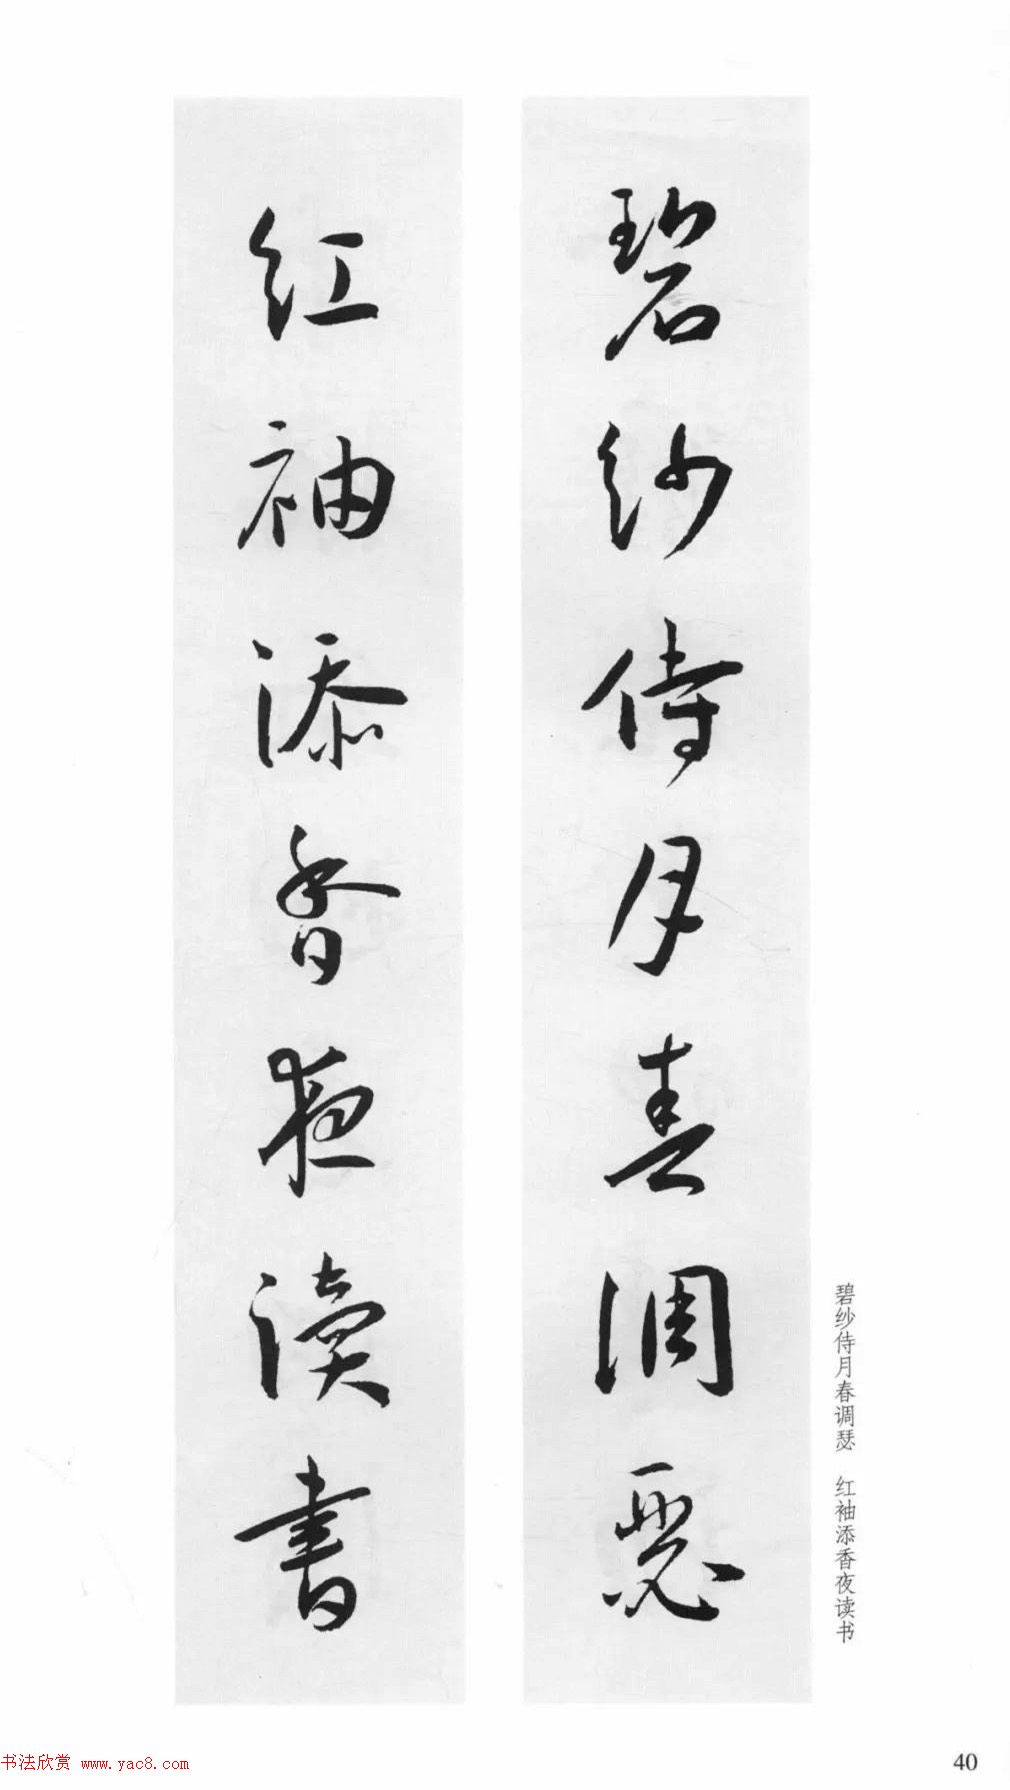 碧纱侍月春调瑟
红袖添香夜读书
碧纱侍月春调瑟　红袖添香夜读书
书法欣赏 www.yac8.com
40